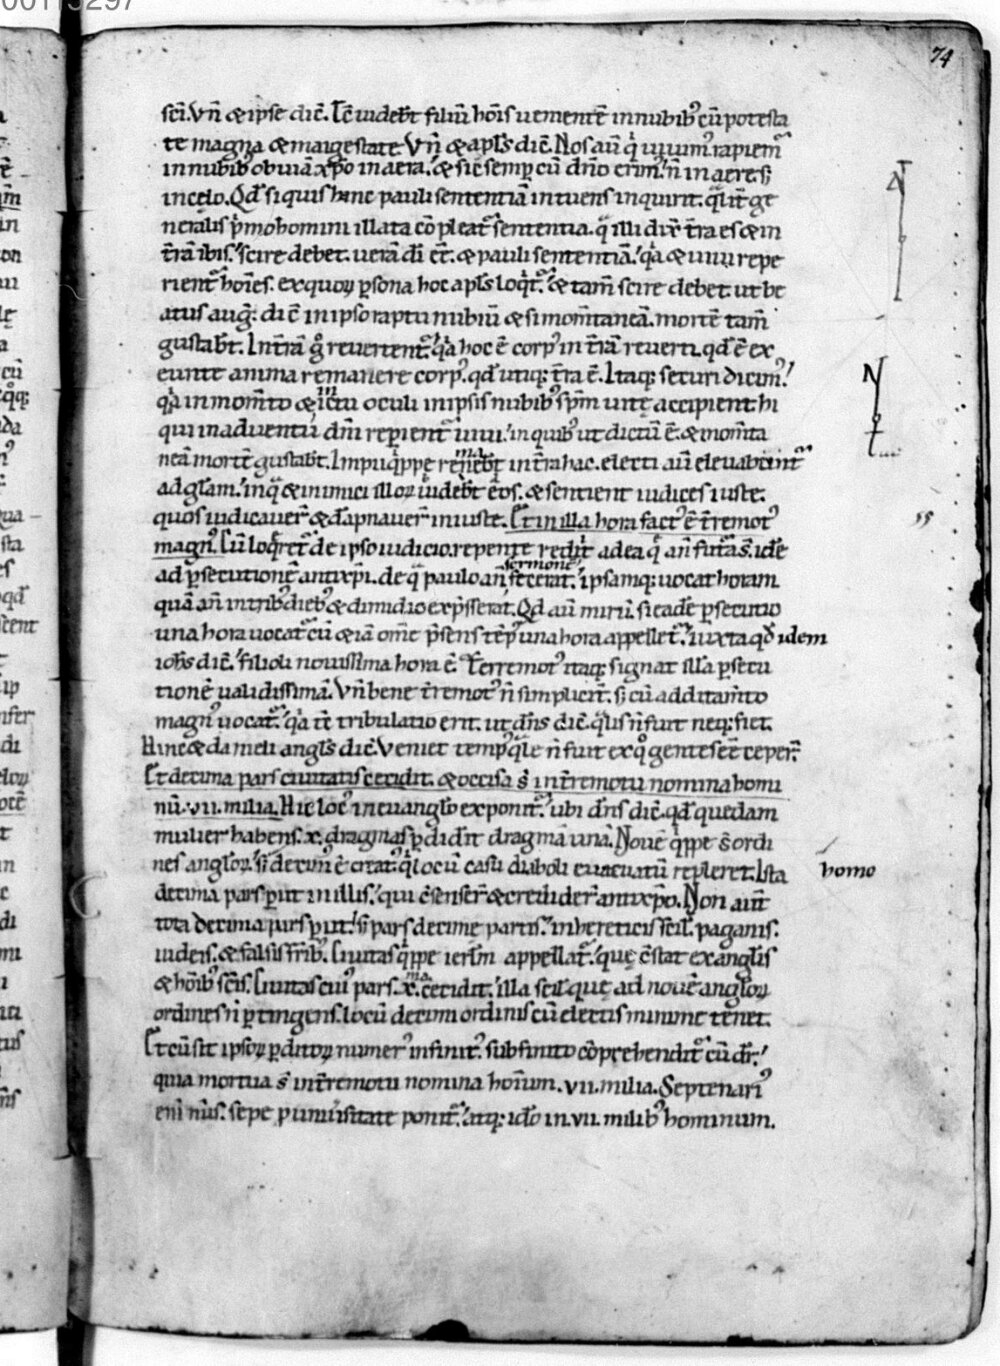 00115297
74
sc̄i. Vn̄ & ipse dic̄. Tc̄ uideb̄t filiū hōis uenientē in nubib; cū potesta
te magna & maigestate. Vn̄ & apl̄s dic̄. Nos aū q̍ uiuim᷒ rapiem᷒
in nubib; obuiā xp̄o in aera. & sic semp̱ cū dn̄o erim᷒. n̄ in aere sꝫ
in celo. Qđ si quis hinc pauli sententiā intuens inquirit. qlit̄ ge
neralis p̍mo homini illata cōpleat᷒ sententia. q̄ illi dix̄ t̄ra es & in
t̄rā ibis. scire debet. uerā dī eē. & pauli sententiā. q̍a & uiui repe
rient᷒ hoīes. ex quoꝝ p̱sona hoc apl̄s loq̍t᷒. & tam̄ scire debet. ut be
atus auḡ. dic̄ in ipso raptu nubiū & si momtaneā. mortē tam̄
gustab̄t. In t̄rā g̊ reuertent᷒. q̍a hoc ē corp᷒ in t̄rā reuerti. qđ ē ex
eunte anima remanere corp᷒. qđ utiq; t̄ra ē. Itaq; securi dicim᷒.
q̍a in mom̄to & ictu oculi in ipsis nubib᷒ sp̄m uitę accipient hi
qui in aduentū dn̄i rep̱ient᷒ uiui. in quib᷒ ut dictū ē. & mom̄ta
neā mortē gustab̄t. Impii q̍ppe remeb̄t in t̄ra hac. electi aū eleuabunt᷒
ad gl̄am. inq̄ & inimici illoꝝ uideb̄t eos. & sentient iudices iuste.
quos iudicauer̄ & dāpnauer̄ iniuste. Et in illa hora fact᷒ ē t̄remot᷒
magn᷒. Cū loq̍ret᷒ de ipso iudicio. repente redit ad ea q̄ an̄ futa s̄. idē
ad p̱secutionē antixp̄i. de q̄ paulo an̄ sermonē fecerat. ipsamq; uocat horam
quā an̄ in trib᷒ dieb᷒ & dimidio exp̄sserat. Qđ aū mirū. si eadē p̱secutio
una hora uocat᷒ cū & iā om̄e p̄sens tēp᷒ una hora appellet᷒. iuxta qđ idem
ioh̄s dic̄. filioli nouissima hora ē. Terremot᷒ itaq; signat illā p̱secu
tionē ualidissimā. Vn̄ bene t̄remot᷒ n̄ simplicit̄. sꝫ cū additam̄to
magn᷒ uocat᷒. q̍a tc̄ tribulatio erit. ut dn̄s dic̄. q̄lis n̄ fuit neq; fiet.
Hinc & danieli angl̄s dic̄. Veniet temp᷒ q̄le n̄ fuit ex q̊ gentes eē ceper̄.
Et decima pars ciuitatis cecidit. & occisa s̄ in t̄remotu nomina homi
nū .vii. milia. Hic loc᷒ in euangl̄io exponit᷒. ubi dn̄s dic̄. qđ quedam
mulier habens .x. dragmas p̱didit dragmā unā. Nouē q̍ppe s̄ ordi
nes angl̄oꝝ. sꝫ decim᷒ ē creat᷒. q̍ locū casu diaboli euacuatū repleret. Ista homo
decima pars p̱iit in illis. qui c̄senser̄ & credider̄ antixp̄o. Non aut̄
tota decima pars p̱iit. sꝫ pars decime partis. in hereticis scil̄. paganis.
iudeis. & falsis fr̄ib᷒. Ciuitas q̍ppe ierl̄m appellat᷒. quę c̄stat ex angl̄is
& hōib᷒ sc̄is. Ciuitas cui᷒ pars .x. cecidit. illa scil̄ quę ad nouē angl̄oꝝ
ordines n̄ p̱tingens. locū decim ordinis cū electis minime tenet.
Et cū sit ipsoꝝ p̱ditoꝝ numer᷒ infinit᷒. sub finito cōprehendit᷒ cū dr̄.
quia mortua s̄ in t̄remotu nomina hom̄um .vii. milia. Septenari᷒
eni num̄s. sepe p̱ uniūsitate ponit᷒. atq; idō in .vii. milib᷒ hominum.